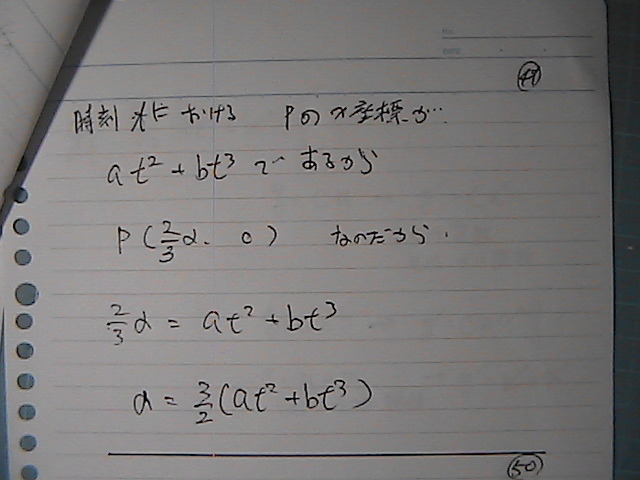 No.
DATE
49
時刻 tに おける Pの x座標が…
at² + bt³ で あるから
P (2/3 α, 0) なのだから.
2/3 α = at² + bt³
α = 3/2 (at² + bt³)
50